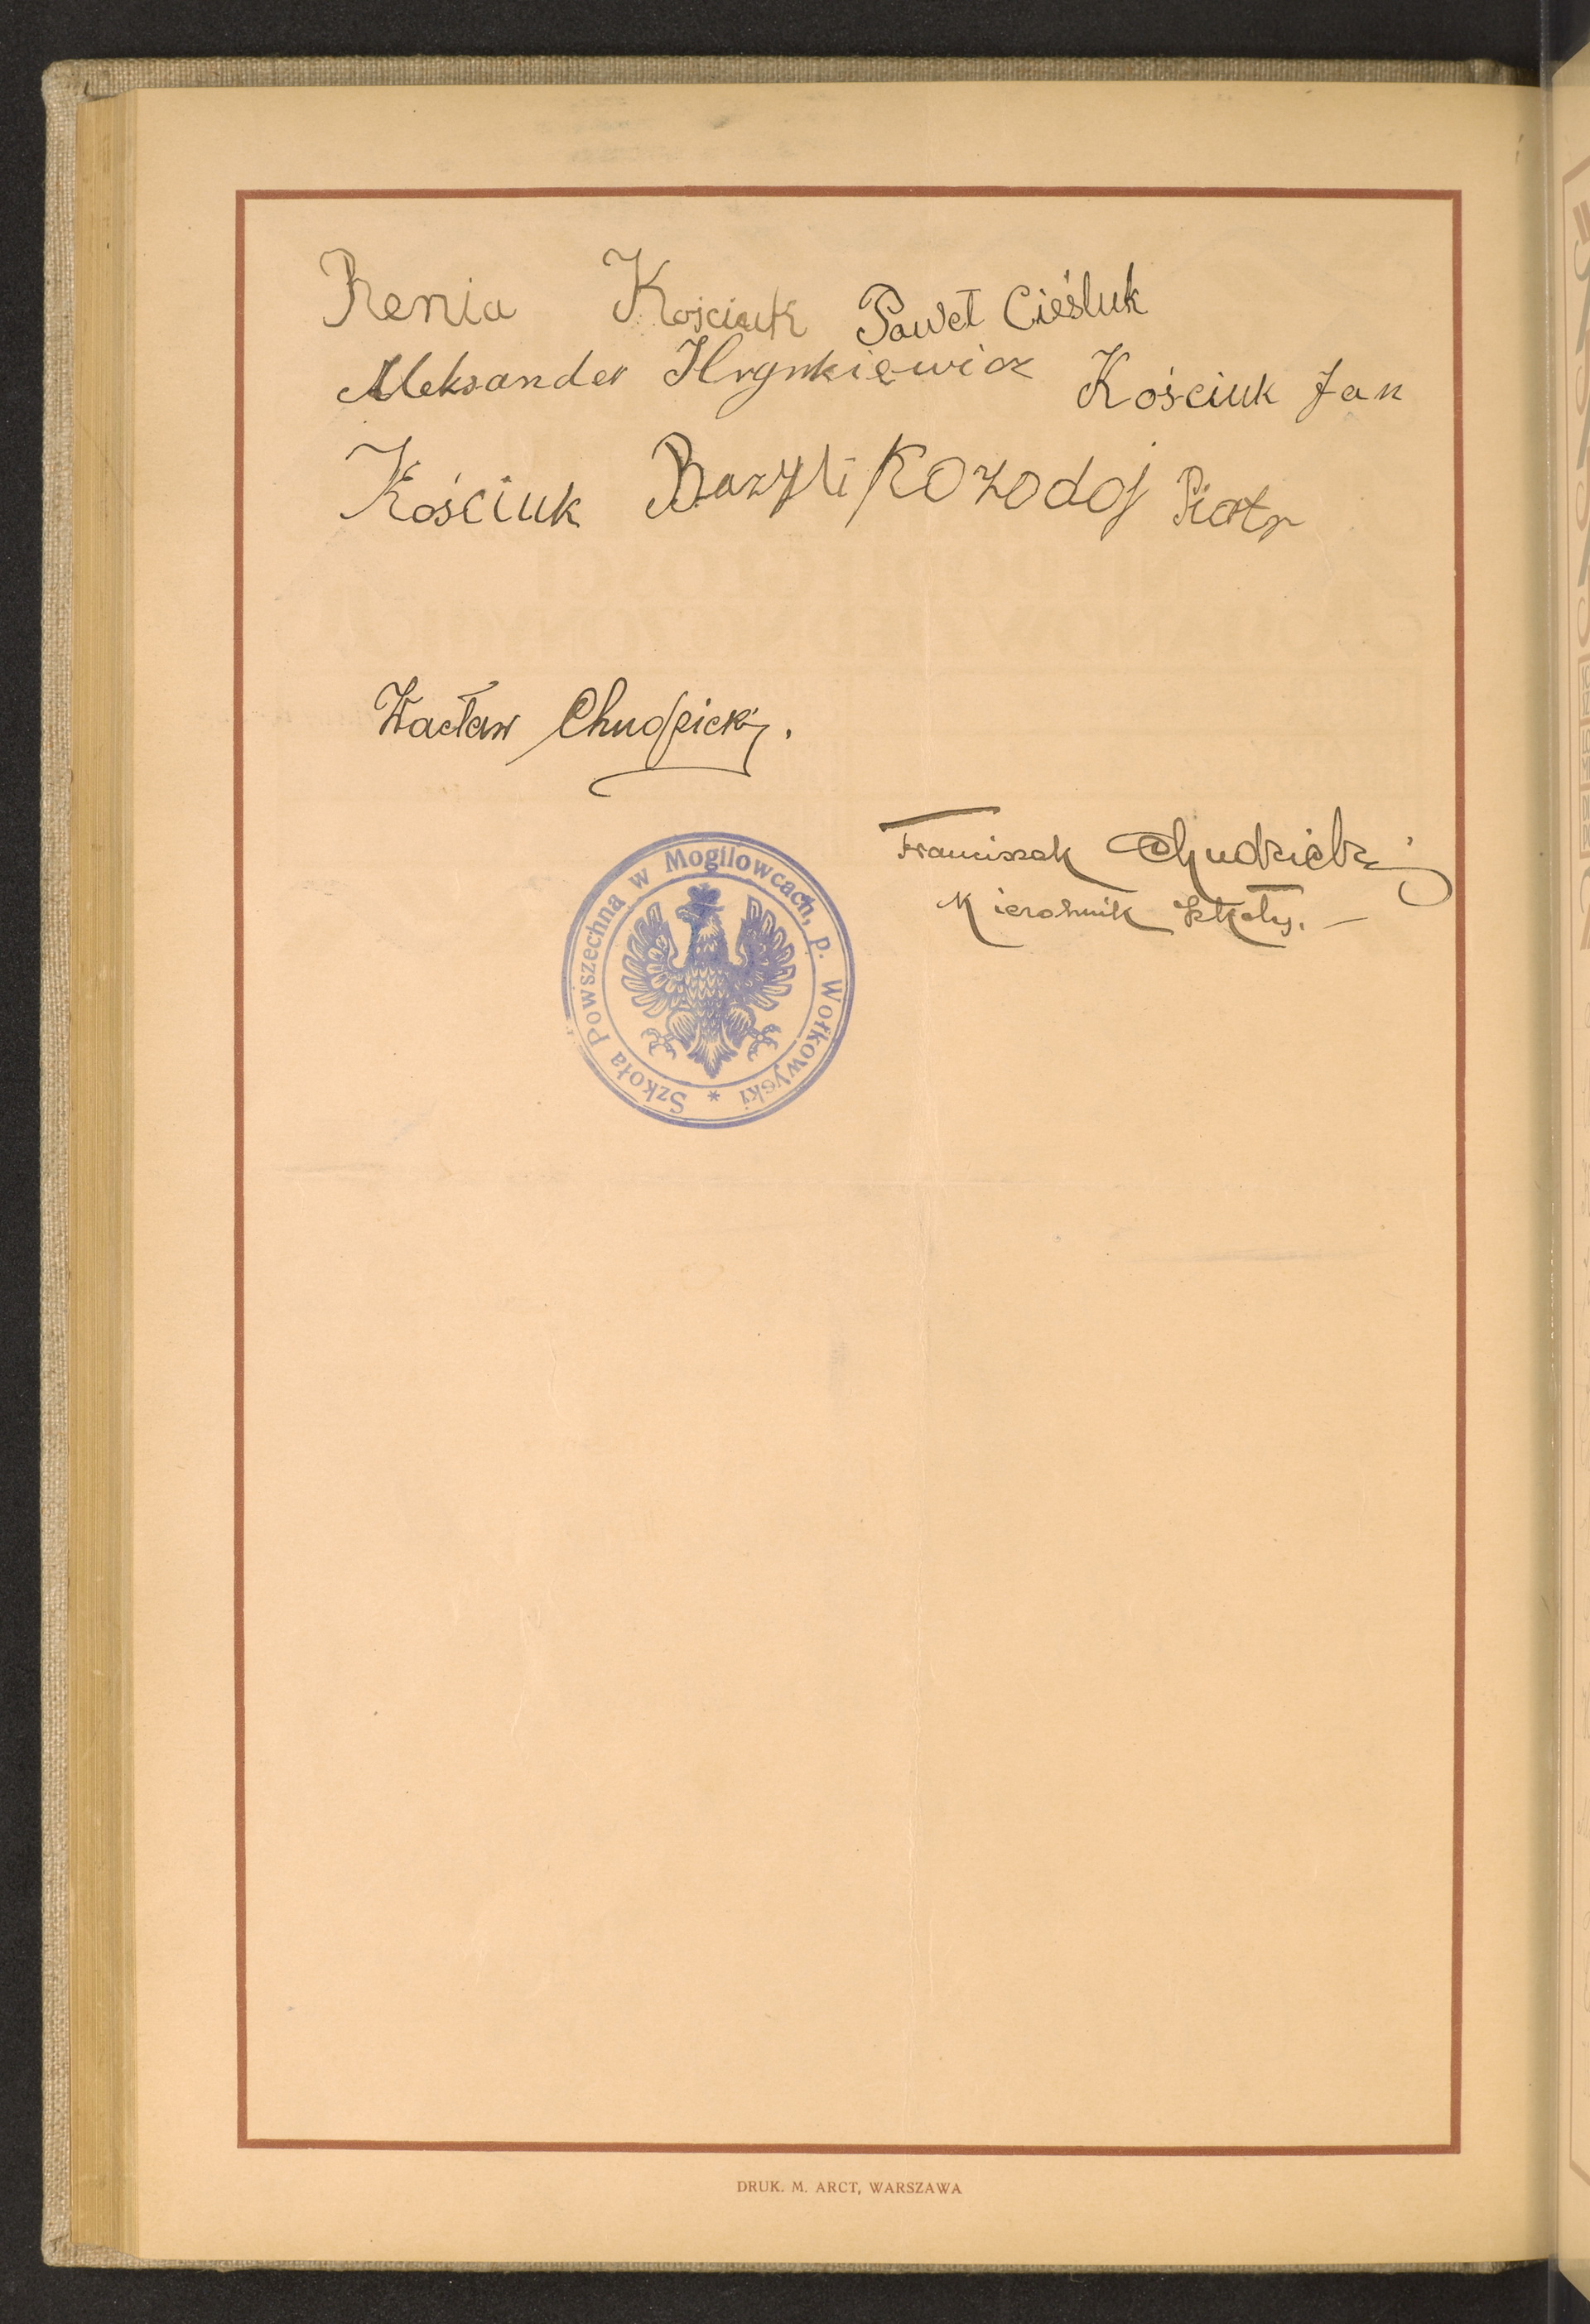 Renia Kościuk Paweł Cieśluk
Aleksander Hrynkiewicz Kościuk Jan
Kościuk Bazyli Kozodoj Piotr
Wacław Chudzicki.
Franciszek Chudzicki
Kierownik Szkoły. —
Szkoła Powszechna w Mogilowcach, p. Wołkowyski *
DRUK. M. ARCT, WARSZAWA